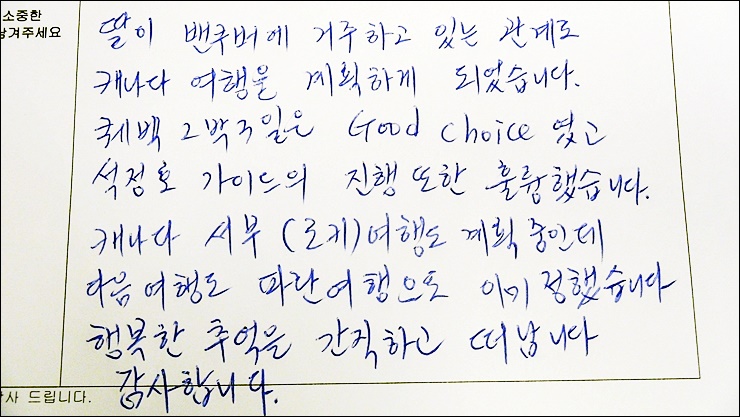 소중한
남겨주세요
딸이 밴쿠버에 거주하고 있는 관계로
캐나다 여행을 계획하게 되었습니다.
퀘벡 2박3일은 Good choice 였고
석정호 가이드의 진행 또한 훌륭했습니다.
캐나다 서부 (로키)여행도 계획 중인데
다음여행도 파란여행으로 이미 정했습니다
행복한 추억을 간직하고 떠납니다
감사합니다.
사 드립니다.